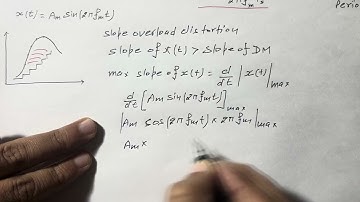 x(t) = Am sin(2πfmt)
Perio
slope overload distortion
slope of x(t) > slope of DM
max slope of x(t) = d/dt |x(t)|max
d/dt [Am sin(2πfmt)]max
|Am cos(2πfmt) × 2πfm|max
Am ×